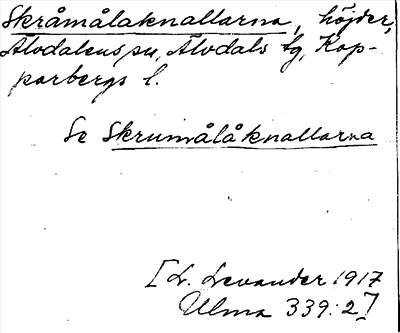 Skråmålaknallarna, höjder,
Älvdalens sn, Älvdals tg, Kop-
parbergs l.
Se Skrumålåknallarna
[L. Levander 1917
Ulma 339:2]